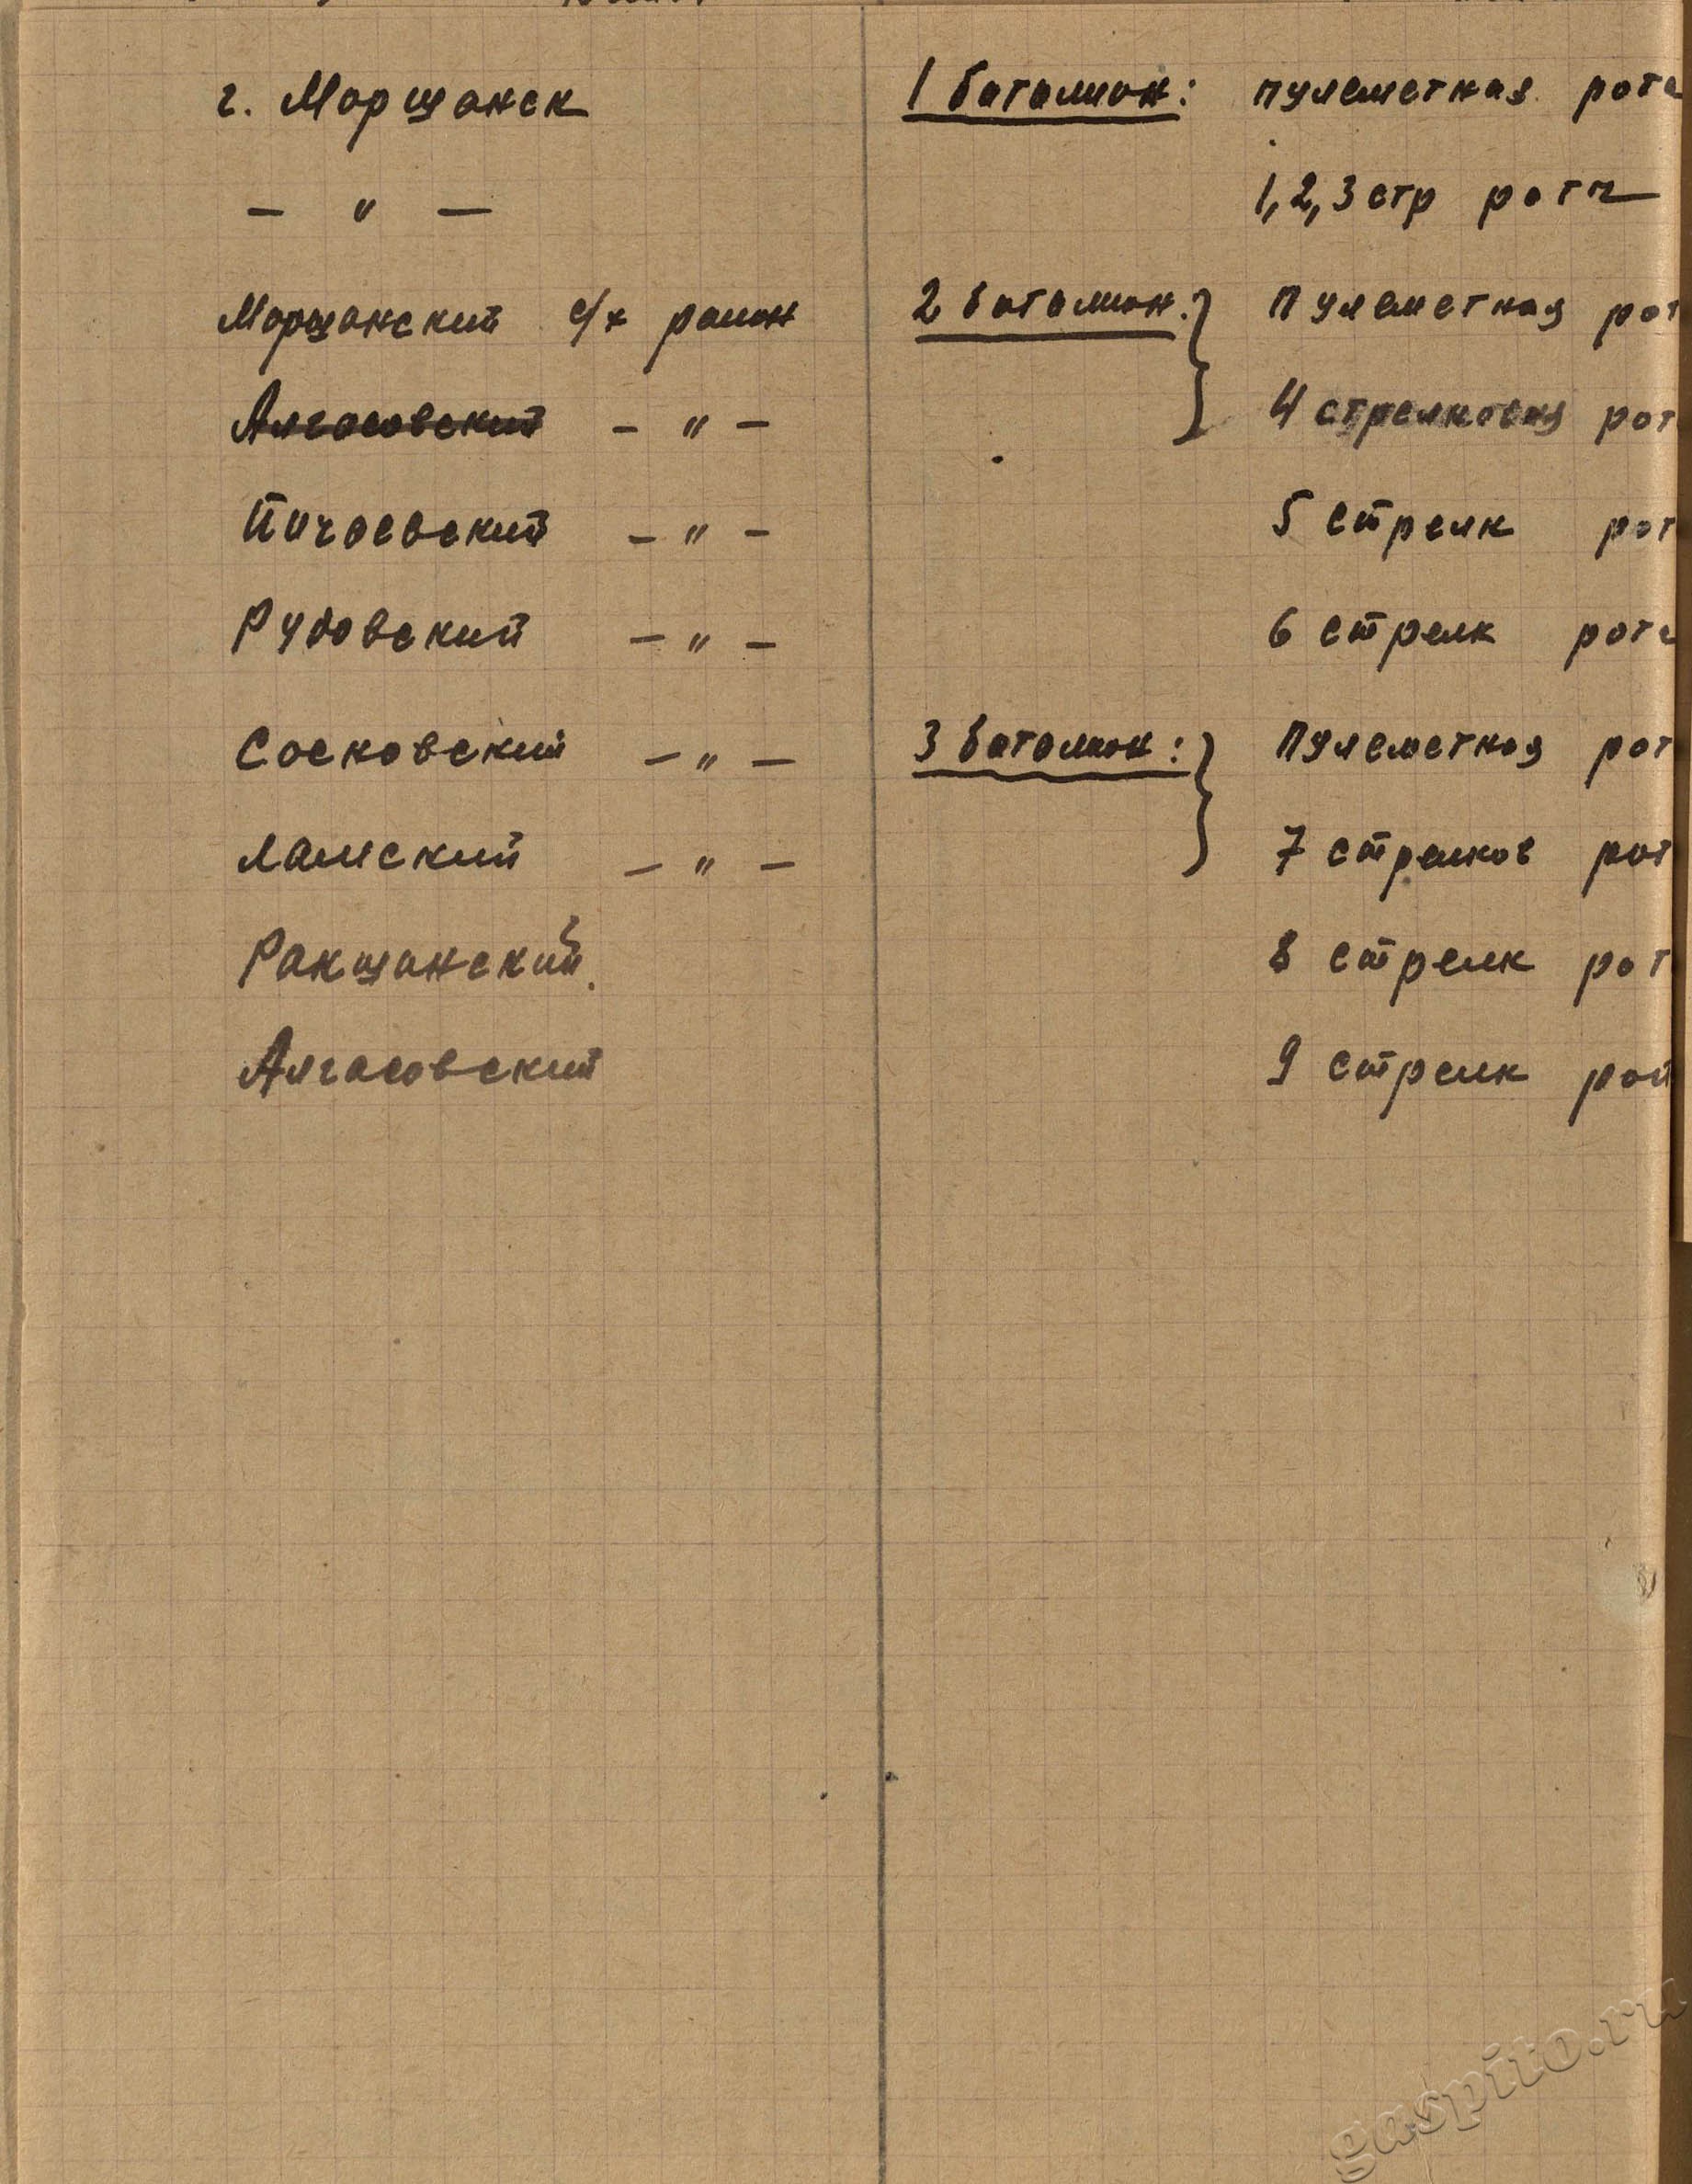 г. Моршанск 1 батальон: пулеметная рота
— " — 1, 2, 3 стр роты
Моршанский с/х район 2 батальон: пулеметная рот
Алгасовский — " — 4 стрелковая рот
Пичаевский — " — 5 стрелк рот
Рудовский — " — 6 стрелк рота
Сосновский — " — 3 батальон: пулеметная рот
Ламский — " — 7 стрелков рот
Ракшанский. 8 стрелк рот
Алгасовский 9 стрелк рот
gaspito.ru